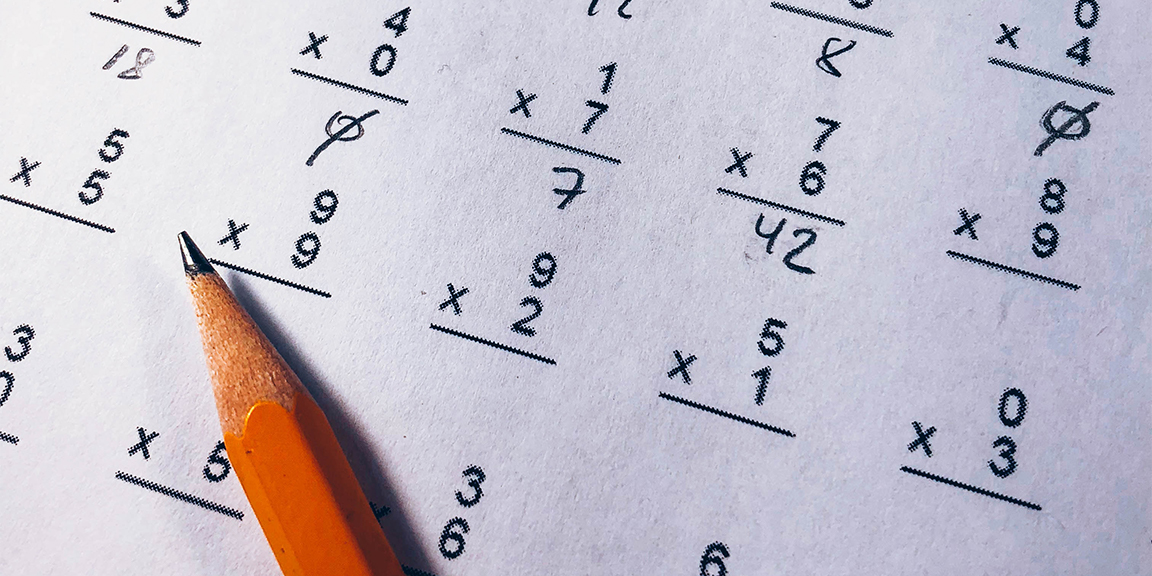 3
18
4
x 0
0
1
x 7
7
8
0
x 4
0
5
x 5
9
x 9
9
x 2
7
x 6
42
8
x 9
5
x 1
0
x 3
3
x 5
3
6
6